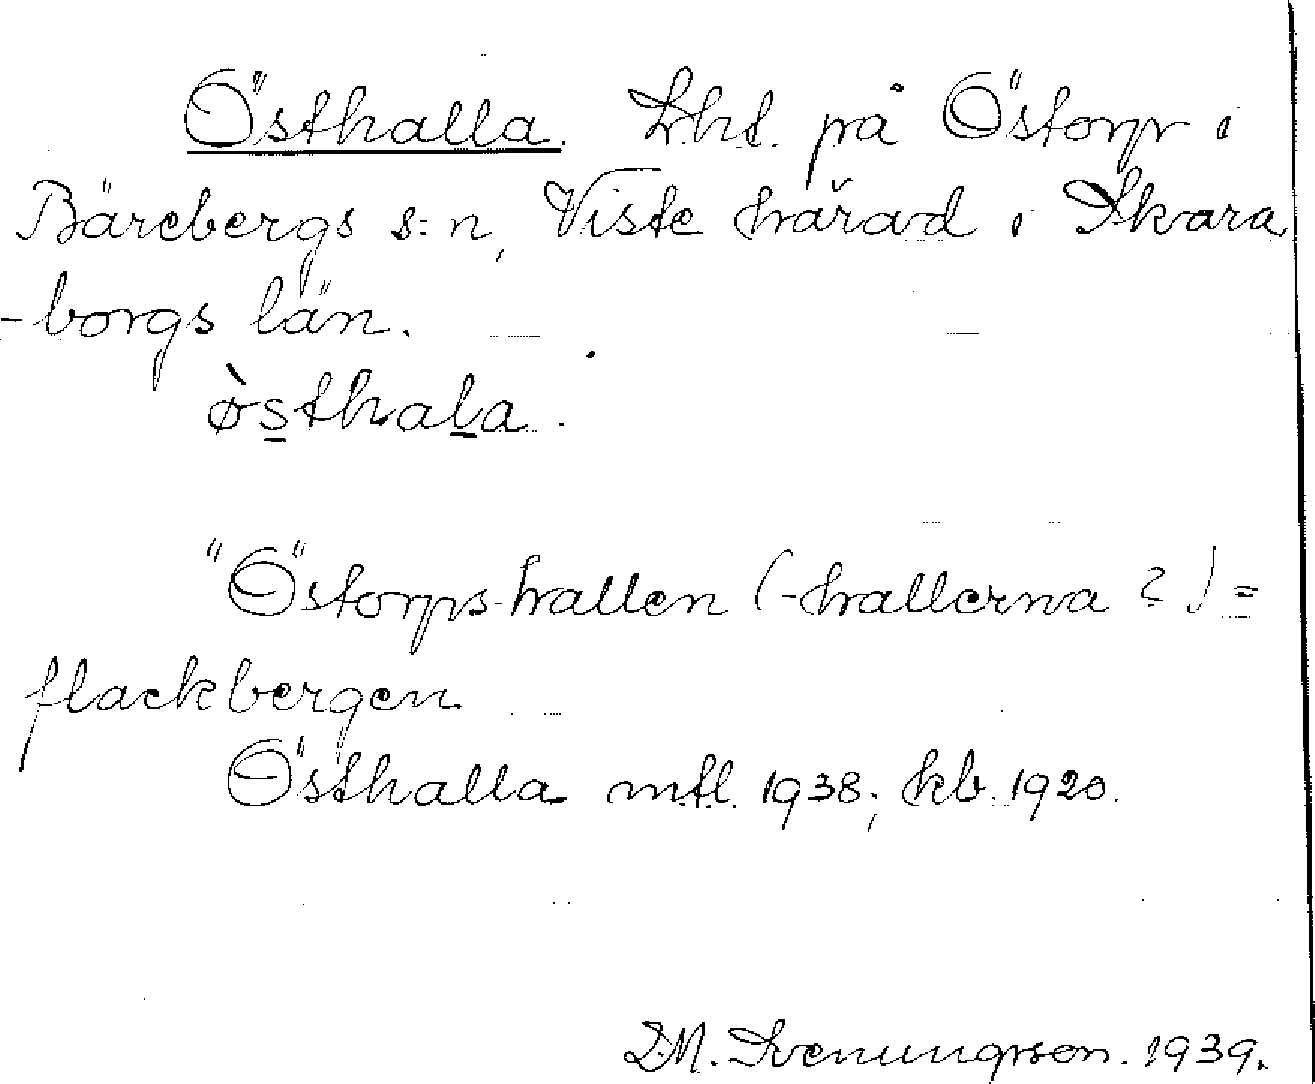 Östhalla. Lht. på Östorp i
Bärebergs s:n, Viste härad i Skara
-borgs län.
ø̀sthala.
"Östorps-hallen (-hallerna?) =
flackbergen
Östhalla mtl. 1938; kb. 1920.
D.M. Svenungsson. 1939.